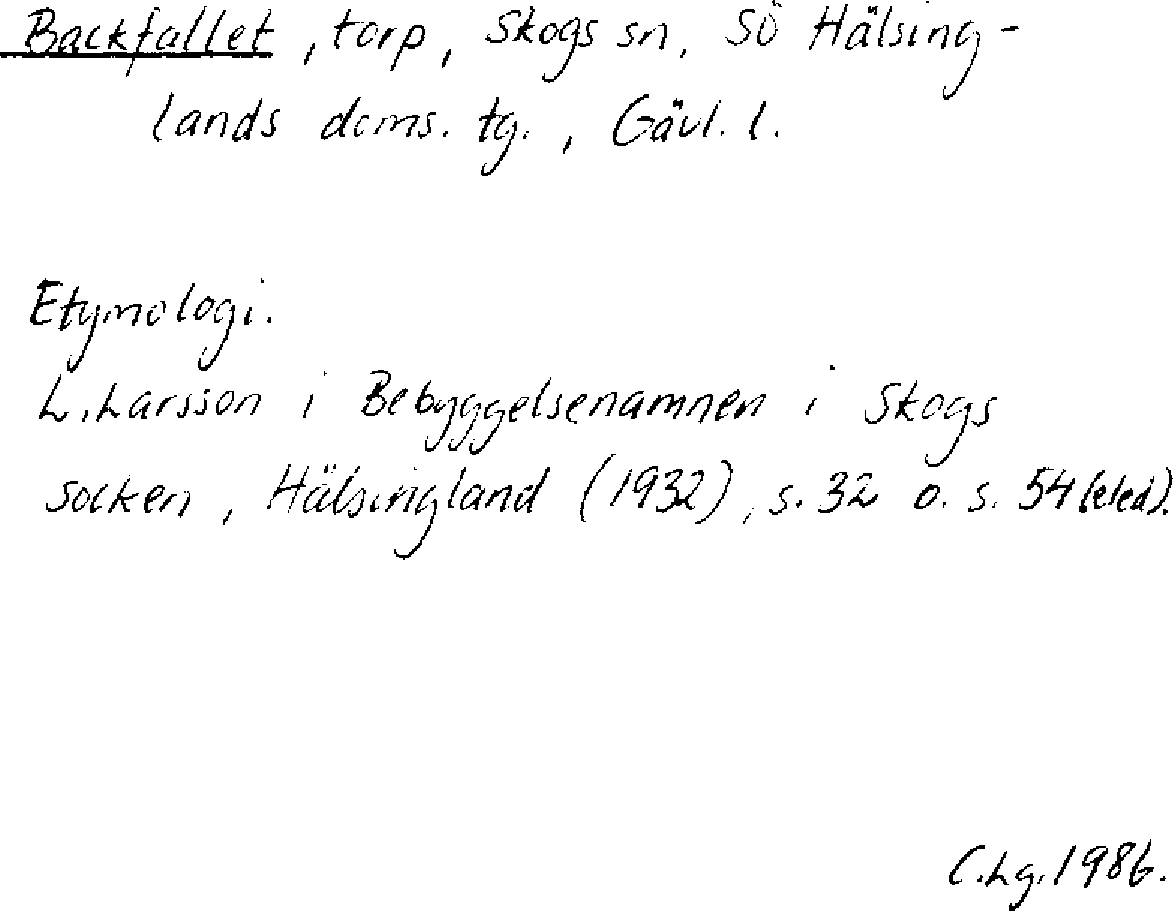 Backfallet, torp, Skogs sn, SÖ Hälsing-
lands doms. tg., Gävl. l.
Etymologi.
L. Larsson i Bebyggelsenamnen i Skogs
socken, Hälsingland (1932), s. 32 o. s. 54 (eled).
C.Lg. 1986.